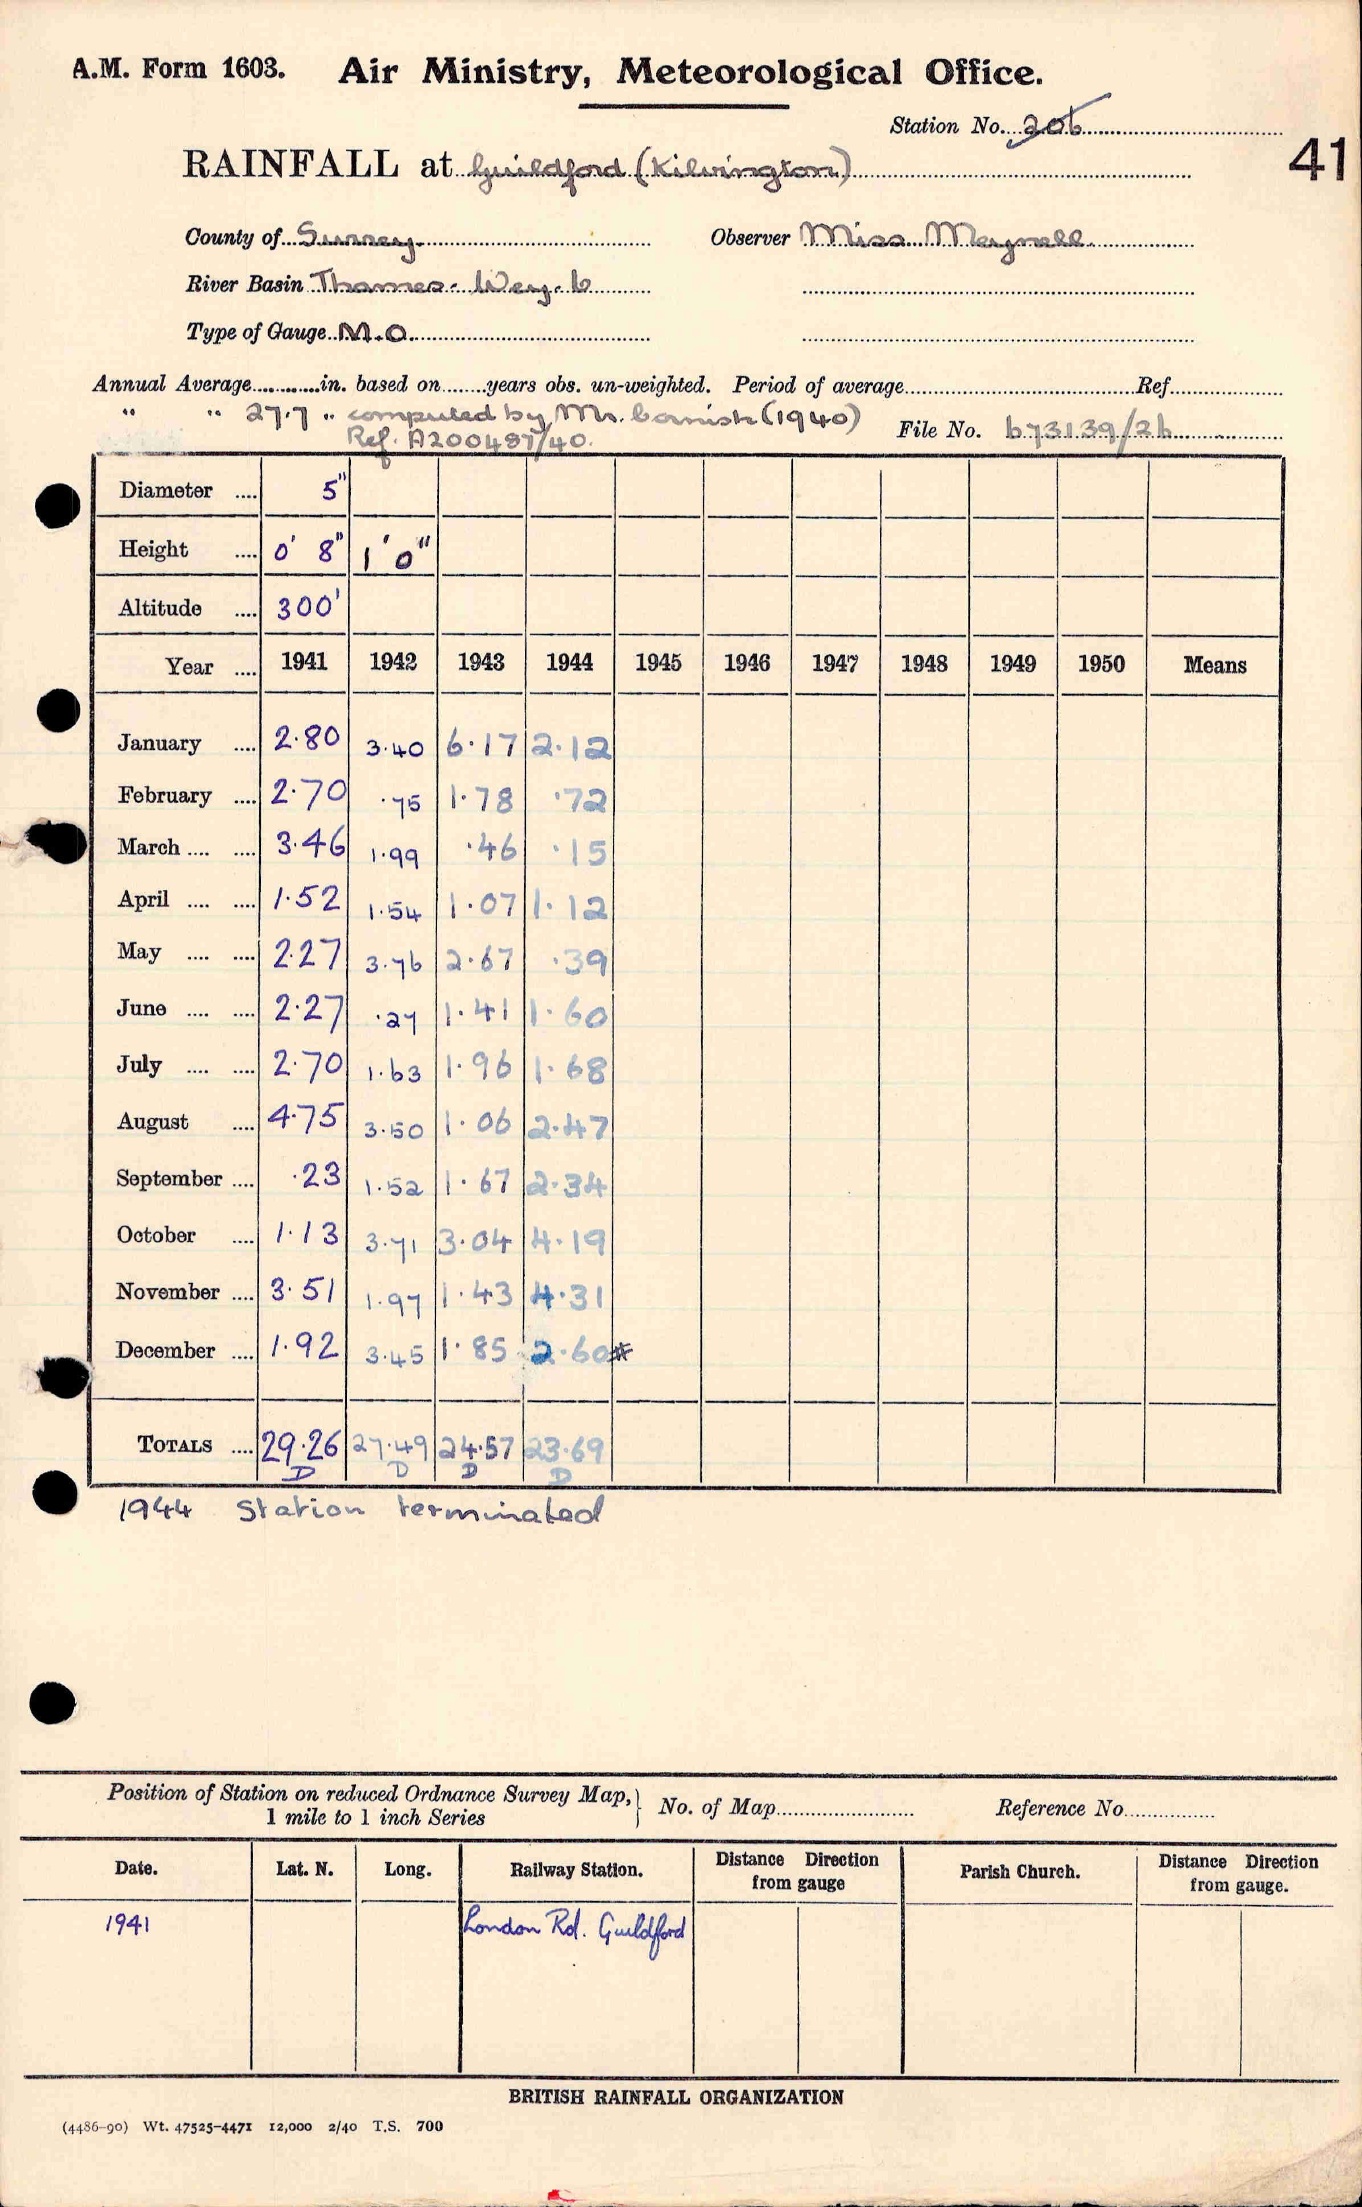 A.M. Form 1603. Air Ministry, Meteorological Office.
Station No. 206
41
RAINFALL at Guildford (Kilvington)
County of Surrey. Observer Miss Meynell.
River Basin Thames. Wey. 6
Type of Gauge M.O.
Annual Average............in. based on........years obs. un-weighted. Period of average........................Ref...............
" " 27.7 " computed by Mr. Cornish (1940)
Ref. A200487/40. File No. 673139/26
Diameter .... 5"
Height .... 0' 8" 1' 0"
Altitude .... 300'
Year .... 1941 1942 1943 1944 1945 1946 1947 1948 1949 1950 Means
January .... 2.80 3.40 6.17 2.12
February .... 2.70 .75 1.78 .72
March .... .... 3.46 1.99 .46 .15
April .... .... 1.52 1.54 1.07 1.12
May .... .... 2.27 3.76 2.67 .39
June .... .... 2.27 .27 1.41 1.60
July .... .... 2.70 1.63 1.96 1.68
August .... 4.75 3.50 1.06 2.47
September .... .23 1.52 1.67 2.34
October .... 1.13 3.71 3.04 4.19
November .... 3.51 1.97 1.43 4.31
December .... 1.92 3.45 1.85 2.60#
TOTALS .... 29.26 27.49 24.57 23.69
D D D D
1944 Station terminated
Position of Station on reduced Ordnance Survey Map,
1 mile to 1 inch Series } No. of Map........................ Reference No................
Date. Lat. N. Long. Railway Station. Distance Direction from gauge Parish Church. Distance Direction from gauge.
1941 London Rd. Guildford
BRITISH RAINFALL ORGANIZATION
(4486-90) Wt. 47525-4471 12,000 2/40 T.S. 700